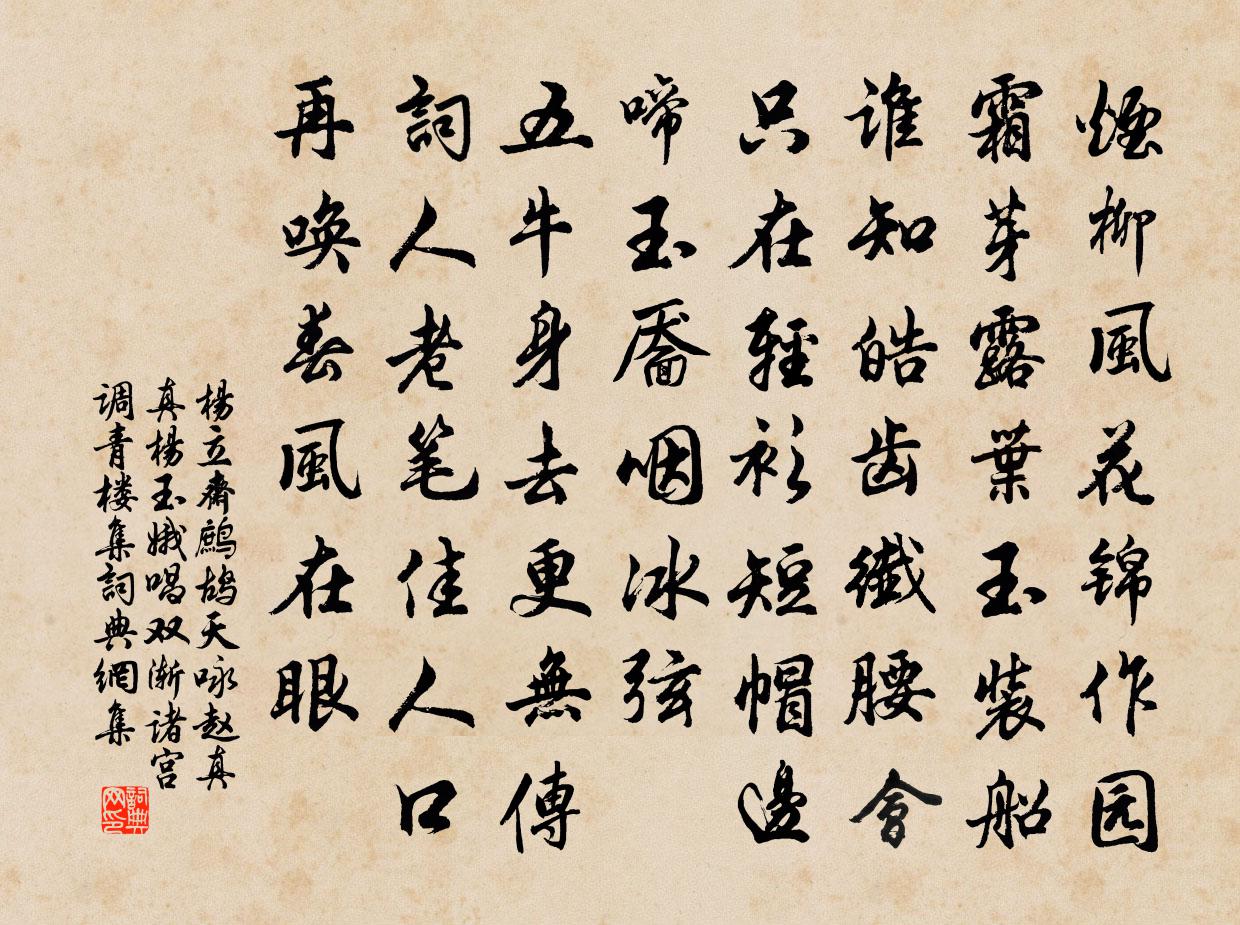 煙柳風花锦作园
霜芽露葉玉裝船
谁知皓齿纖腰會
只在輕衫短帽邊
啼玉靥咽冰弦
五牛身去更無傳
詞人老笔佳人口
再唤春風在眼
楊立齋鷓鸪天咏赵真
真楊玉娥唱双渐诸宫
调青楼集詞典網集
詞典网印